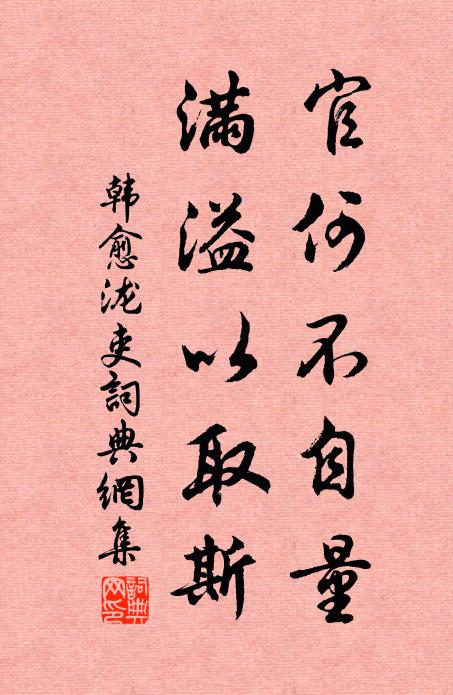 官何不自量
满溢以取斯
韩愈泷吏詞典網集
詞典网印